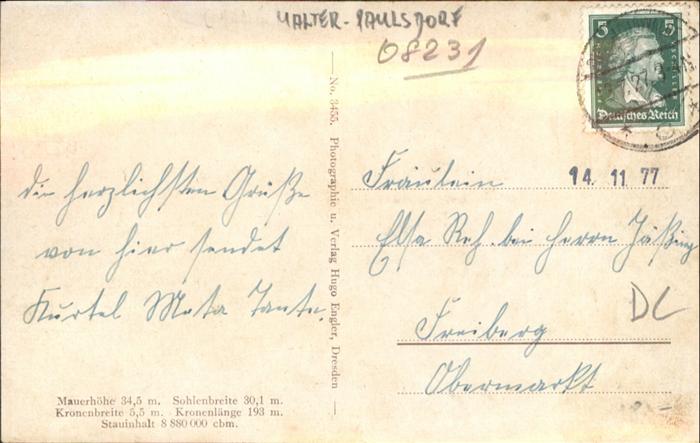 MALTER-PAULSDORF
08231
5 5
Deutsches Reich
die herzlichsten Grüße
von hier sendet
Kurtel Meta Tante.
No. 3455. Photographie u. Verlag Hugo Engler, Dresden
Fräulein
14. 11 77
Elsa Reh. bei Herrn
Freiberg
Obermarkt
DL
Mauerhöhe 34,5 m. Sohlenbreite 30,1 m.
Kronenbreite 5,5 m. Kronenlänge 193 m.
Stauinhalt 8 880 000 cbm.